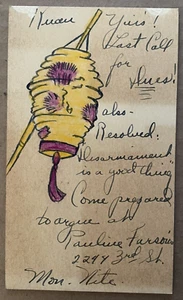 'Kuan Yins'!
Last Call
for
Dues!
also-
Resolved:
"Disarmament
is a good thing"
Come prepared
to argue at
Pauline Parsons
2294 3rd St.
Mon. Nite.